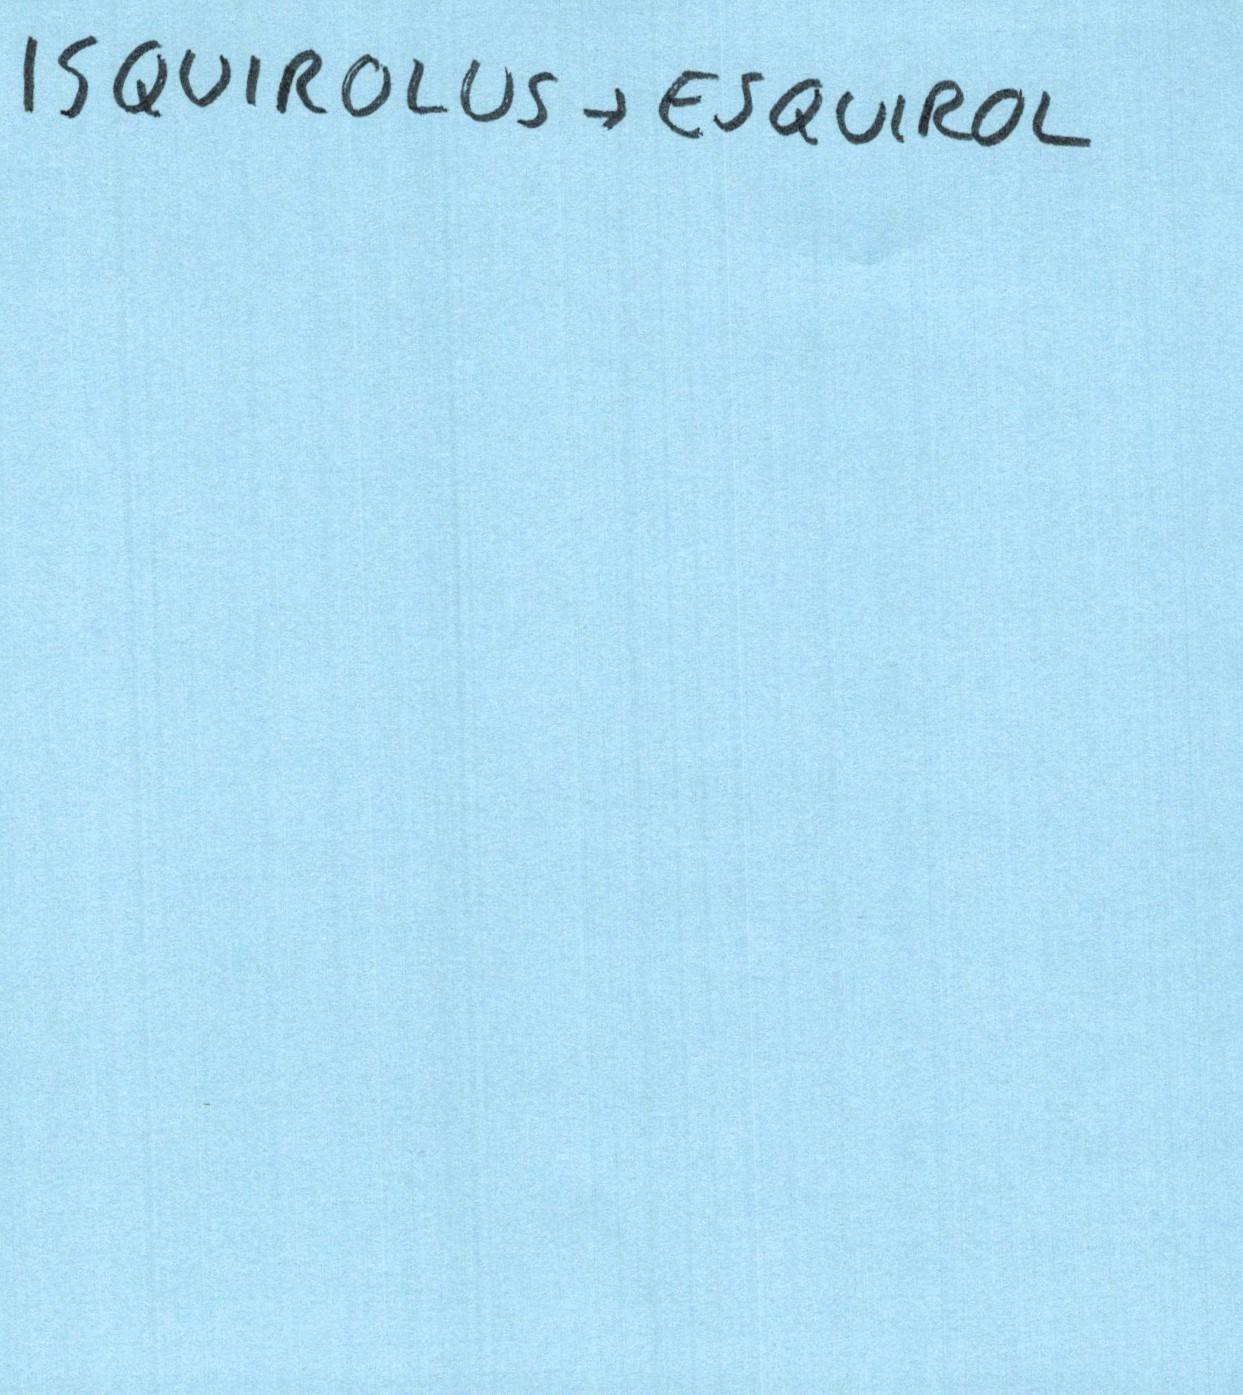 ISQUIROLUS → ESQUIROL